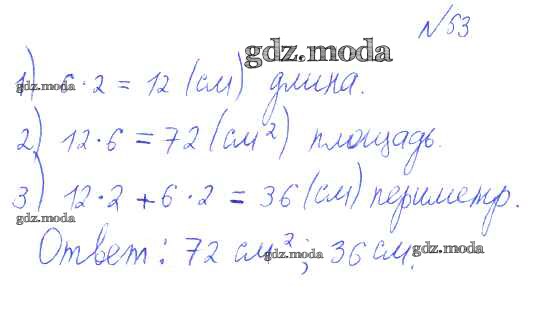 №53
gdz.moda
1) 6·2 = 12 (см) длина.
gdz.moda
2) 12·6 = 72 (см²) площадь.
3) 12·2 + 6·2 = 36 (см) периметр.
gdz.moda
Ответ: 72 см²; 36 см.
gdz.moda